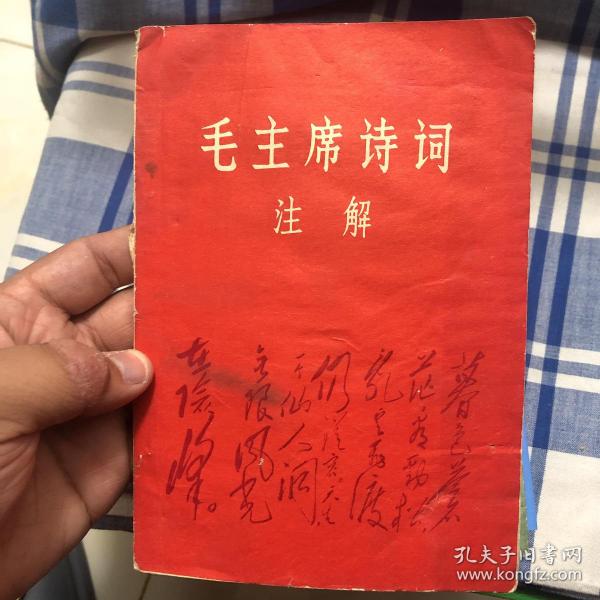 毛主席诗词
注解
暮色苍
茫看劲松
乱云飞渡
仍从容天生
一个仙人洞
无限风光
在险峰。
孔夫子旧书网
www.kongfz.com